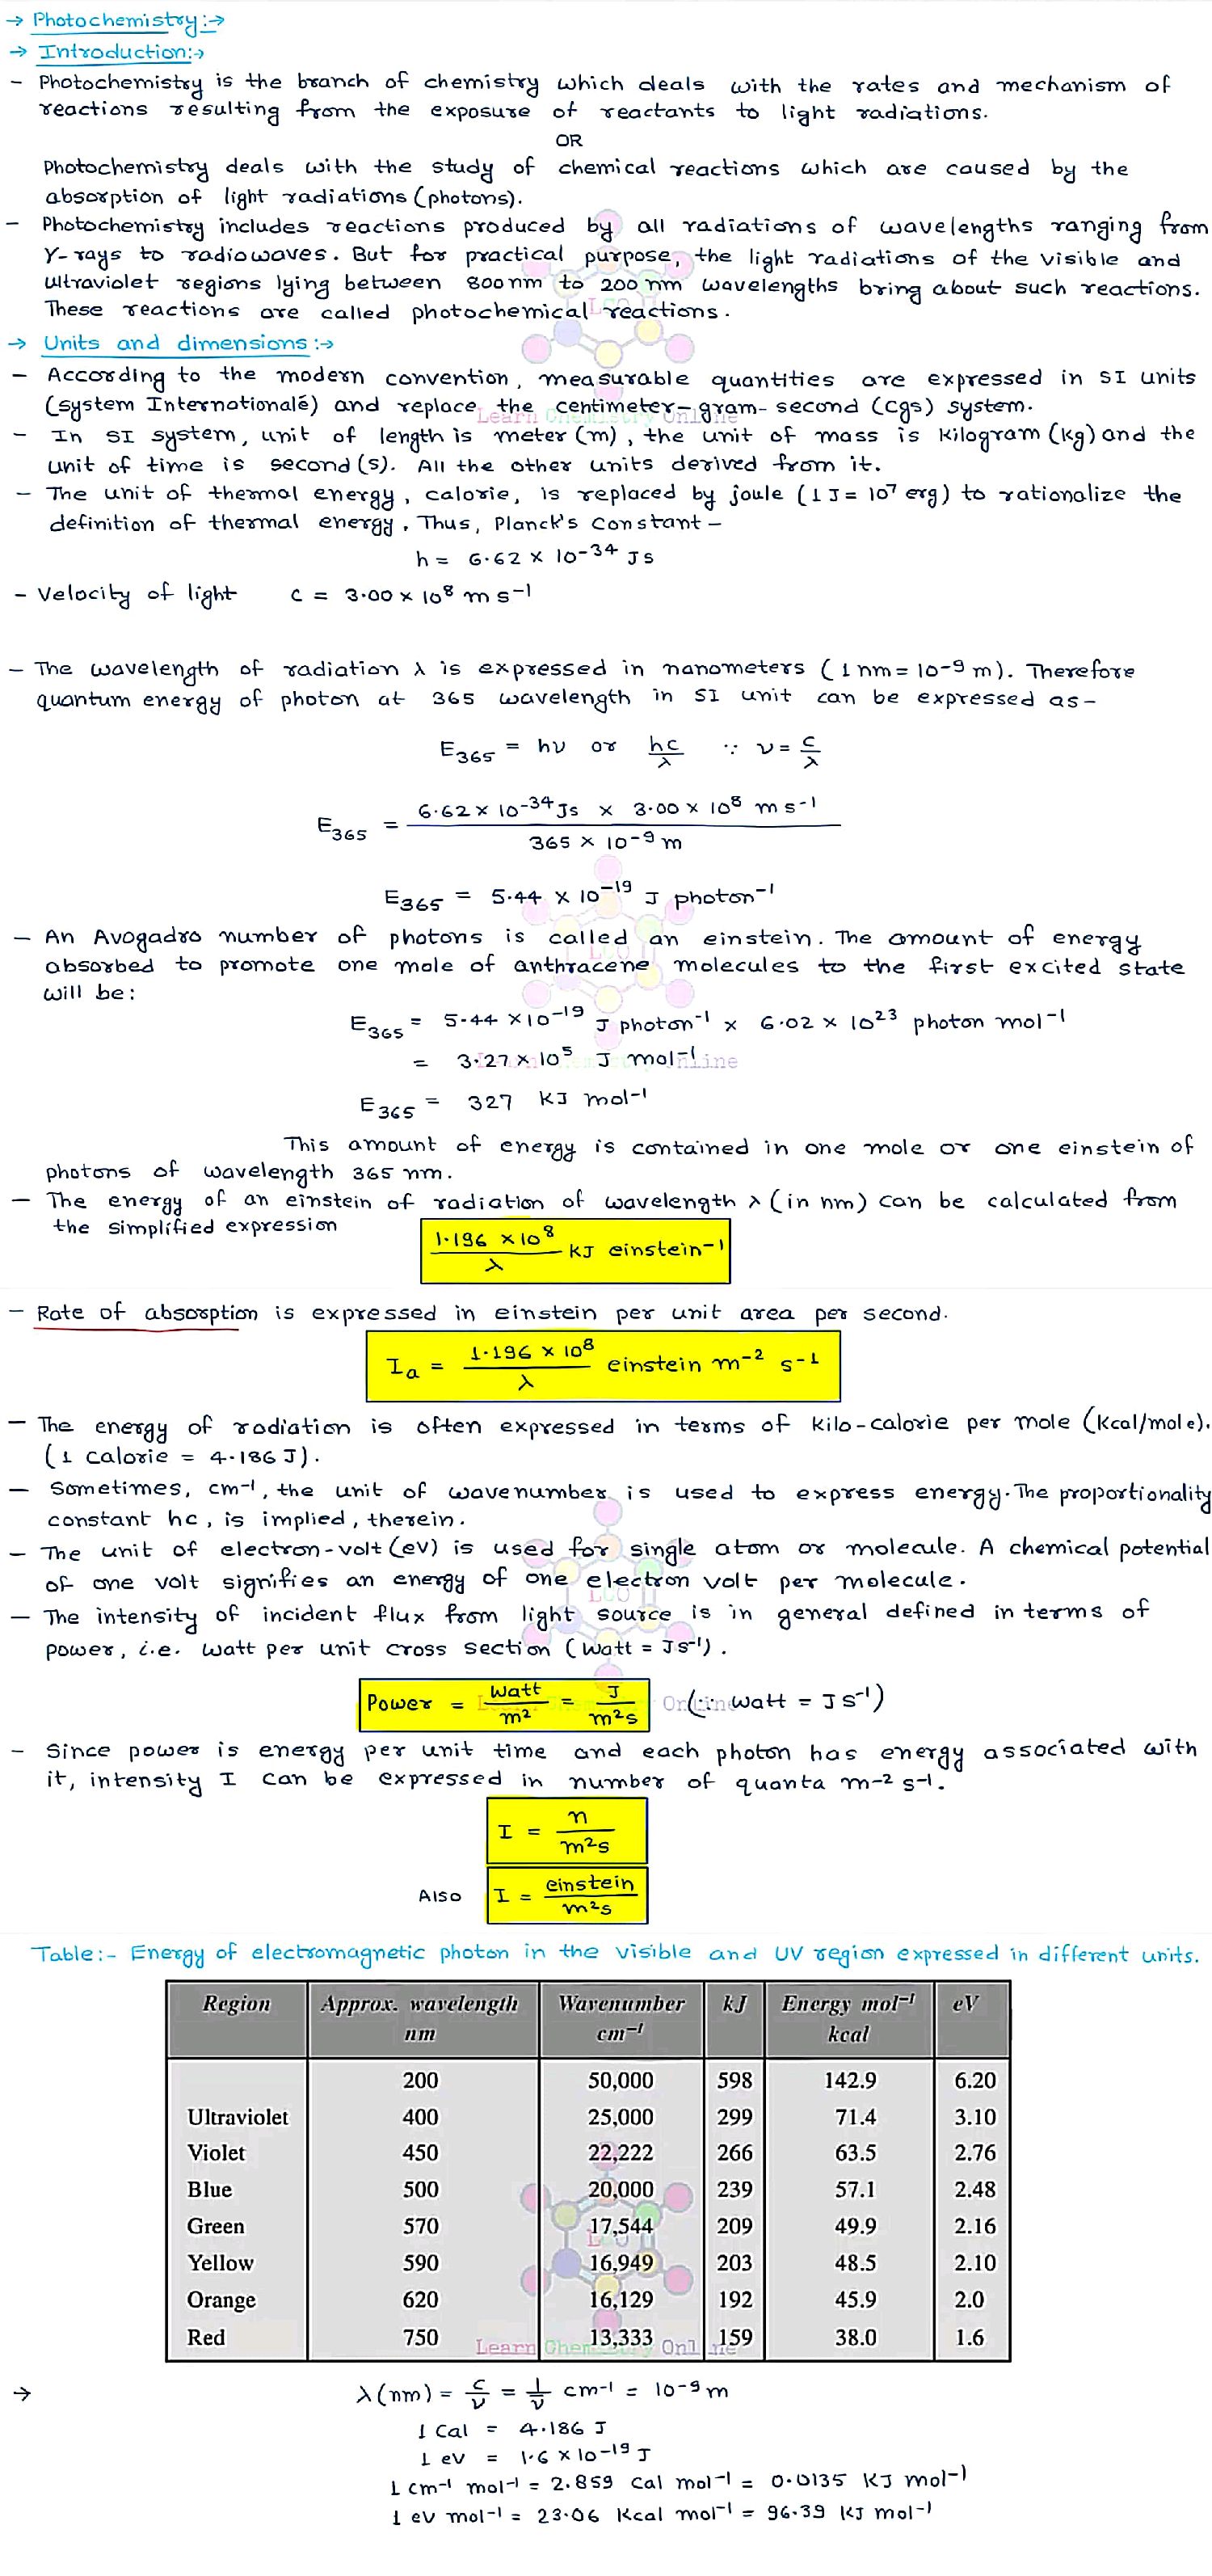 → Photochemistry:→
→ Introduction:→
- Photochemistry is the branch of chemistry which deals with the rates and mechanism of
reactions resulting from the exposure of reactants to light radiations.
OR
Photochemistry deals with the study of chemical reactions which are caused by the
absorption of light radiations (photons).
- Photochemistry includes reactions produced by all radiations of wavelengths ranging from
γ-rays to radiowaves. But for practical purpose, the light radiations of the visible and
ultraviolet regions lying between 800nm to 200 nm wavelengths bring about such reactions.
These reactions are called photochemical reactions.
→ Units and dimensions:→
- According to the modern convention, measurable quantities are expressed in SI units
(system Internationalé) and replace the centimeter-gram-second (cgs) system.
- In SI system, unit of length is meter (m), the unit of mass is kilogram (kg) and the
unit of time is second (s). All the other units derived from it.
- The unit of thermal energy, calorie, is replaced by joule (1 J = 10⁷ erg) to rationalize the
definition of thermal energy. Thus, Planck's constant -
h = 6.62 × 10⁻³⁴ Js
- Velocity of light c = 3.00 × 10⁸ m s⁻¹
- The wavelength of radiation λ is expressed in nanometers (1 nm = 10⁻⁹ m). Therefore
quantum energy of photon at 365 wavelength in SI unit can be expressed as -
E₃₆₅ = hν or hc/λ ∵ ν = c/λ
E₃₆₅ = 6.62 × 10⁻³⁴ Js × 3.00 × 10⁸ m s⁻¹ / 365 × 10⁻⁹ m
E₃₆₅ = 5.44 × 10⁻¹⁹ J photon⁻¹
- An Avogadro number of photons is called an einstein. The amount of energy
absorbed to promote one mole of anthracene molecules to the first excited state
will be:
E₃₆₅ = 5.44 × 10⁻¹⁹ J photon⁻¹ × 6.02 × 10²³ photon mol⁻¹
= 3.27 × 10⁵ J mol⁻¹
E₃₆₅ = 327 kJ mol⁻¹
This amount of energy is contained in one mole or one einstein of
photons of wavelength 365 nm.
- The energy of an einstein of radiation of wavelength λ (in nm) can be calculated from
the simplified expression
1.196 × 10⁸/λ kJ einstein⁻¹
- Rate of absorption is expressed in einstein per unit area per second.
Iₐ = 1.196 × 10⁸/λ einstein m⁻² s⁻¹
- The energy of radiation is often expressed in terms of kilo-calorie per mole (kcal/mole).
(1 calorie = 4.186 J).
- Sometimes, cm⁻¹, the unit of wavenumber is used to express energy. The proportionality
constant hc, is implied, therein.
- The unit of electron-volt (eV) is used for single atom or molecule. A chemical potential
of one volt signifies an energy of one electron volt per molecule.
- The intensity of incident flux from light source is in general defined in terms of
power, i.e. watt per unit cross section (Watt = Js⁻¹).
Power = Watt/m² = J/m²s (∵ watt = J s⁻¹)
- Since power is energy per unit time and each photon has energy associated with
it, intensity I can be expressed in number of quanta m⁻² s⁻¹.
I = n/m²s
Also I = einstein/m²s
Table:- Energy of electromagnetic photon in the visible and UV region expressed in different units.
Region Approx. wavelength Wavenumber kJ Energy mol⁻¹ eV
nm cm⁻¹ kcal
200 50,000 598 142.9 6.20
Ultraviolet 400 25,000 299 71.4 3.10
Violet 450 22,222 266 63.5 2.76
Blue 500 20,000 239 57.1 2.48
Green 570 17,544 209 49.9 2.16
Yellow 590 16,949 203 48.5 2.10
Orange 620 16,129 192 45.9 2.0
Red 750 13,333 159 38.0 1.6
Learn Chemistry Online
→ λ(nm) = c/ν = 1/ν̄ cm⁻¹ = 10⁻⁹ m
1 Cal = 4.186 J
1 eV = 1.6 × 10⁻¹⁹ J
1 cm⁻¹ mol⁻¹ = 2.859 Cal mol⁻¹ = 0.0135 KJ mol⁻¹
1 eV mol⁻¹ = 23.06 Kcal mol⁻¹ = 96.39 KJ mol⁻¹